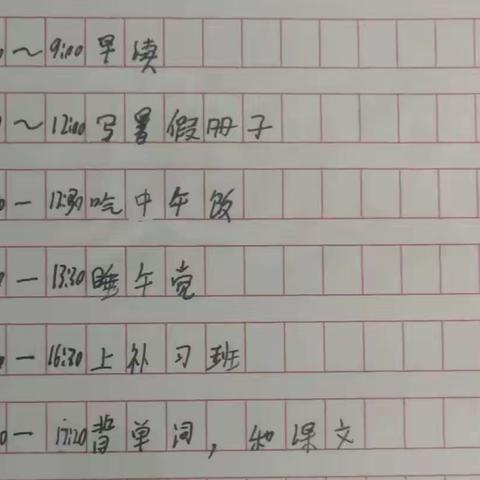 0~9:00早读
0~12:00写暑假册子
0—12:30吃中午饭
0—13:30睡午觉
0—16:30上补习班
0—17:20背单词,和课文